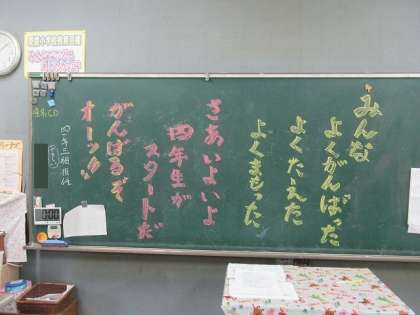 みんな
よくがんばった
よくたえた
よくまもった
さあいよいよ
四年生が
スタートだ
がんばるぞ
オーッ!!
四年三組担任